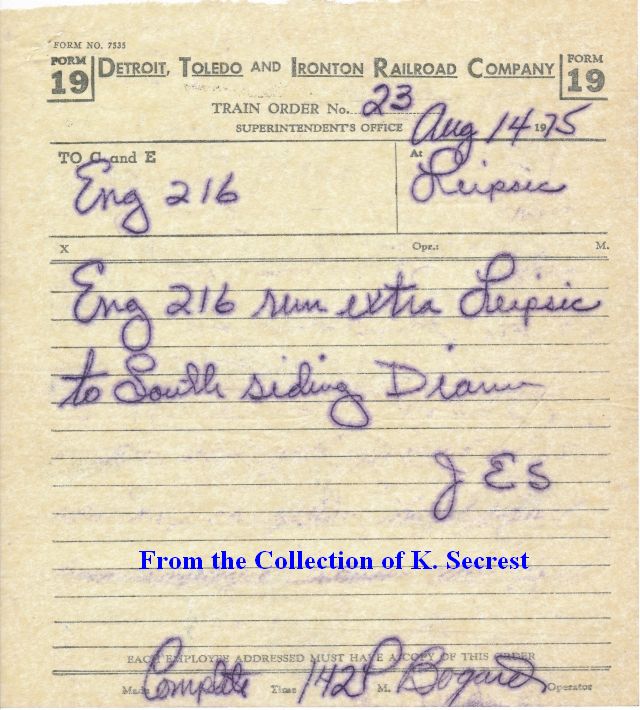 FORM NO. 7535
FORM 19 DETROIT, TOLEDO AND IRONTON RAILROAD COMPANY FORM 19
TRAIN ORDER No. 23
SUPERINTENDENT'S OFFICE Aug 14 1975
TO C and E At
Eng 216 Leipsic
X Opr.: M.
Eng 216 run extra Leipsic
to South siding Diann
J E S
From the Collection of K. Secrest
EACH EMPLOYEE ADDRESSED MUST HAVE A COPY OF THIS ORDER
Made Complete Time 142 P M. Bogard Operator